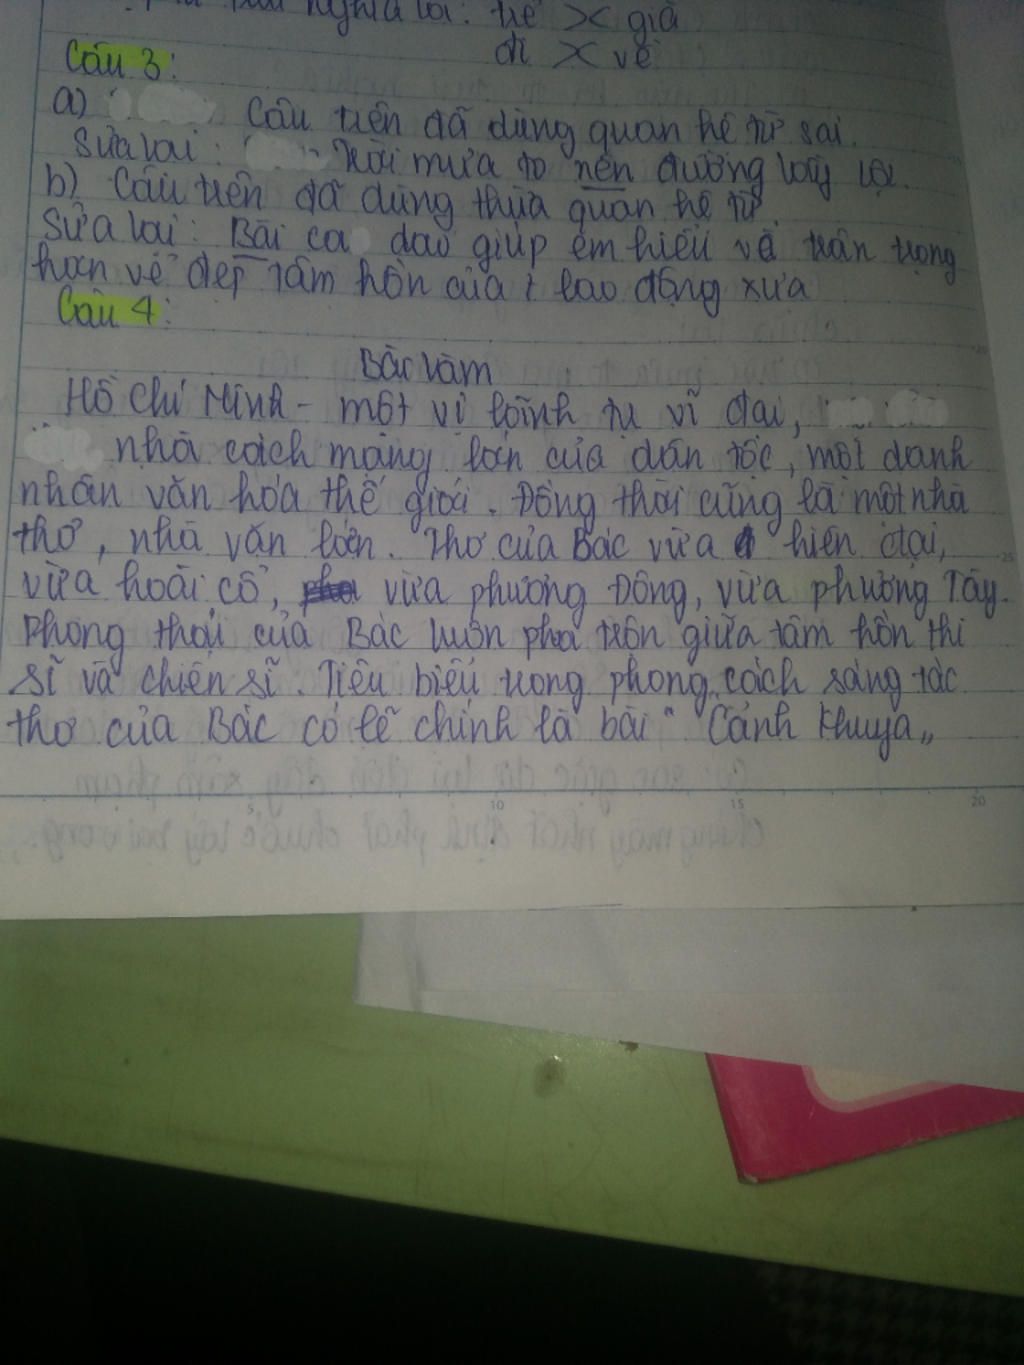 nghĩa là: trẻ X già
đi X về
Câu 3:
a) Câu trên đã dùng quan hệ từ sai.
Sửa lại: Trời mưa to nên đường lầy lội.
b) Câu trên đã dùng thừa quan hệ từ.
Sửa lại: Bài ca dao giúp em hiểu và trân trọng
hơn vẻ đẹp tâm hồn của lao động xưa
Câu 4:
Bài làm
Hồ Chí Minh - một vị lãnh tụ vĩ đại,
nhà cách mạng lớn của dân tộc, một danh
nhân văn hóa thế giới. Đồng thời cũng là một nhà
thơ, nhà văn lớn. Thơ của Bác vừa hiện đại,
vừa hoài cổ, vừa phương Đông, vừa phương Tây.
Phong thái của Bác luôn pha trộn giữa tâm hồn thi
sĩ và chiến sĩ. Tiêu biểu trong phong cách sáng tác
thơ của Bác có lẽ chính là bài "Cảnh Khuya"
5 10 15 20